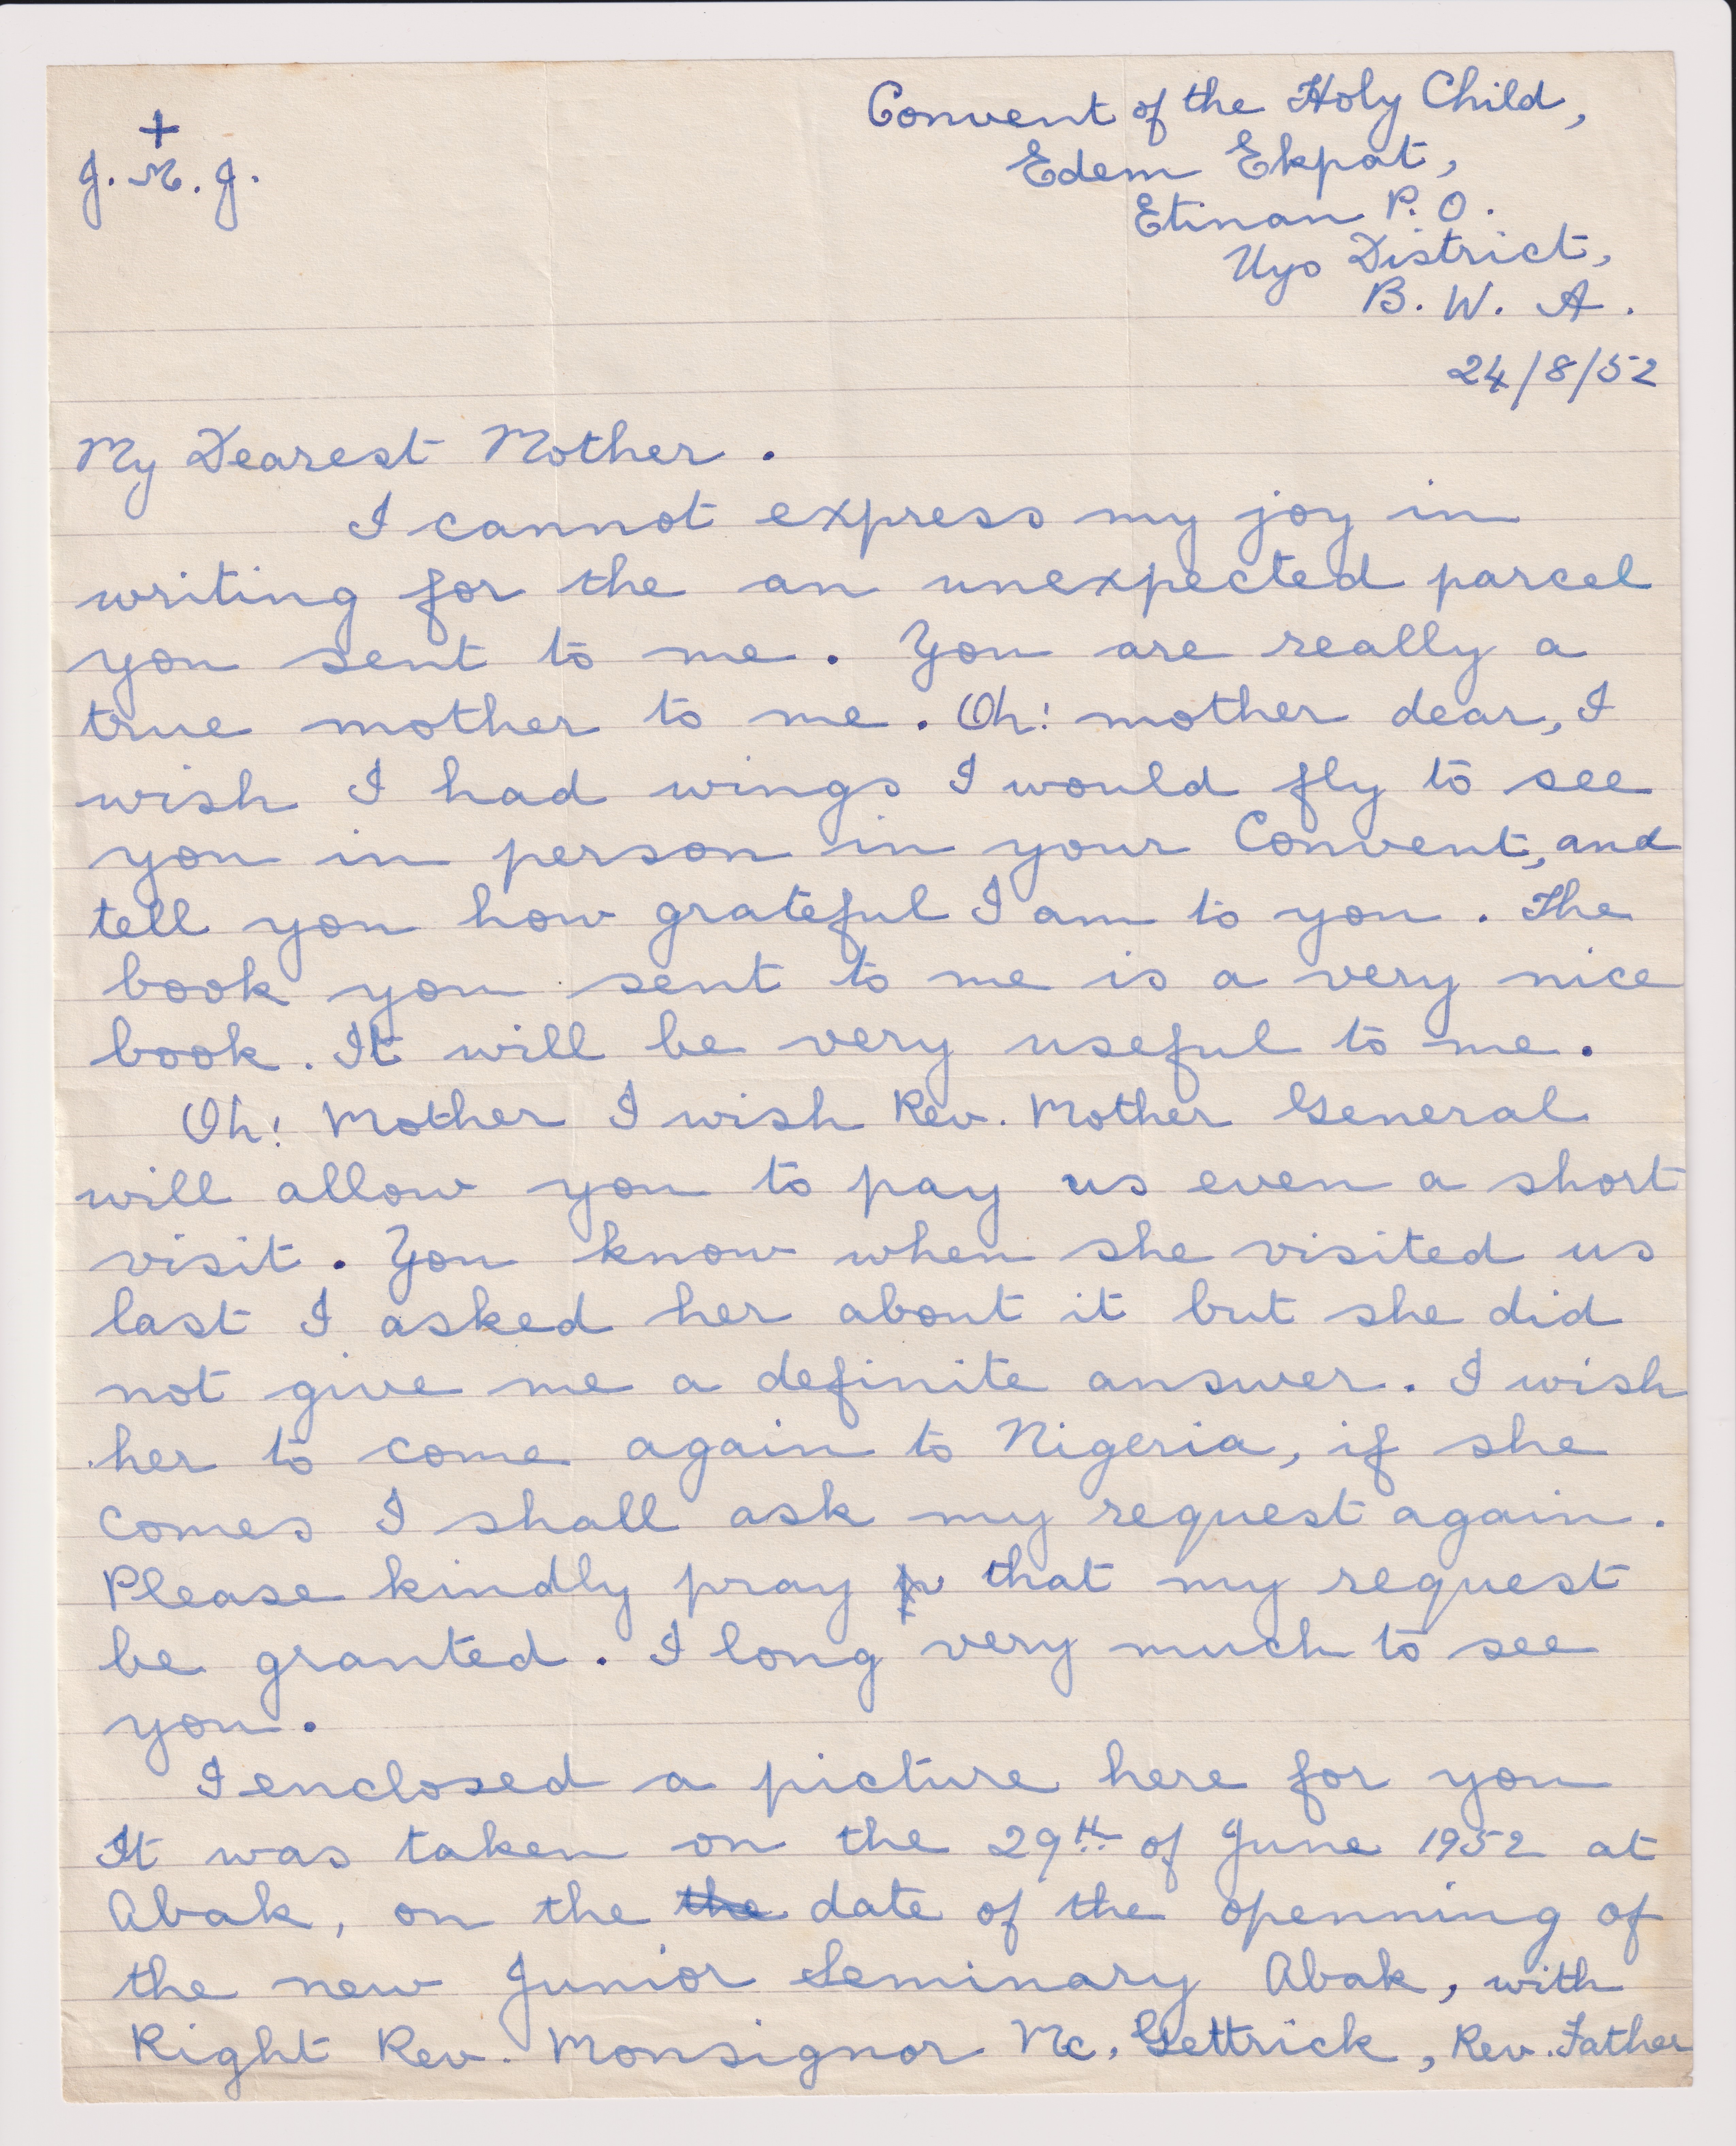 +
J. M. J.
Convent of the Holy Child,
Edem Ekpat,
Etinan P. O.
Uyo District,
B. W. A.
24/8/52
My Dearest Mother.
I cannot express my joy in
writing for the an unexpected parcel
you sent to me. You are really a
true mother to me. Oh! mother dear, I
wish I had wings I would fly to see
you in person in your Convent, and
tell you how grateful I am to you. The
book you sent to me is a very nice
book. It will be very useful to me.
Oh! Mother I wish Rev. Mother General
will allow you to pay us even a short
visit. You know when she visited us
last I asked her about it but she did
not give me a definite answer. I wish
her to come again to Nigeria, if she
comes I shall ask my request again.
Please kindly pray that my request
be granted. I long very much to see
you.
I enclosed a picture here for you
It was taken on the 29th of June 1952 at
Abak, on the the date of the openning of
the new Junior Seminary Abak, with
Right Rev. Monsignor Mc. Gettrick, Rev. Father